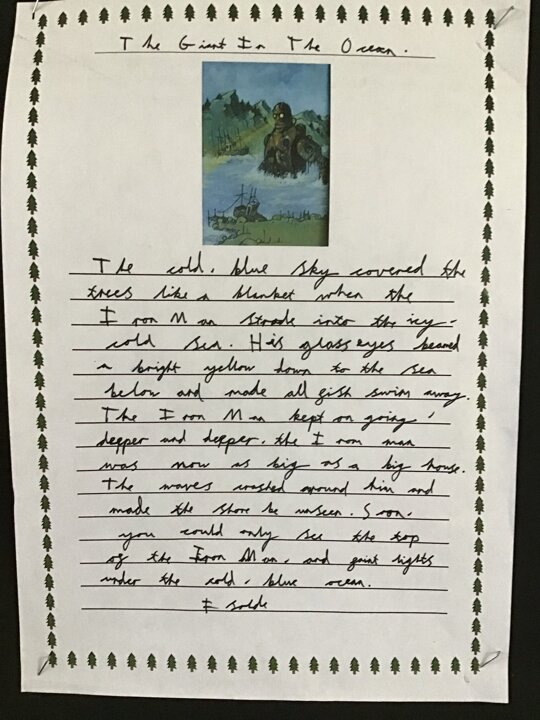 The Giant In The Ocean.
The cold, blue sky covered the
trees like a blanket when the
Iron Man strode into the icy-
cold sea. His glass eyes beamed
a bright yellow down to the sea
below and made all fish swim away.
The Iron Man kept on going,
deeper and deeper, the Iron man
was now as big as a big house.
The waves crashed around him and
made the shore be unseen. Soon,
you could only see the top
of the Iron Man, and faint lights
under the cold, blue ocean.
Isolde